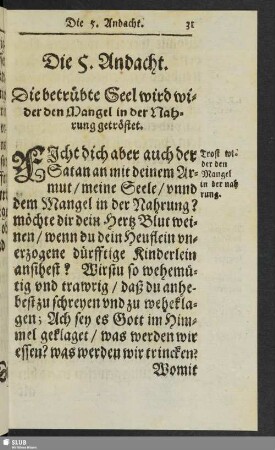 Die 5. Andacht. 31
Die 5. Andacht.
Die betrübte Seel wird wi-
der den Mangel in der Nah-
rung getröstet.
FIcht dich aber auch der
Satan an mit deinem Ar-
mut / meine Seele / vnnd
dem Mangel in der Nahrung?
möchte dir dein Hertz Blut wei-
nen / wenn du dein Heuflein vn-
erzogene dürfftige Kinderlein
ansihest? Wirstu so wehemü-
tig vnd trawrig / daß du anhe-
best zu schreyen vnd zu wehekla-
gen; Ach sey es Gott im Him-
mel geklaget / was werden wir
essen? was werden wir trincken?
Womit
Trost wi-
der den
Mangel
in der nah
rung.
SLUB